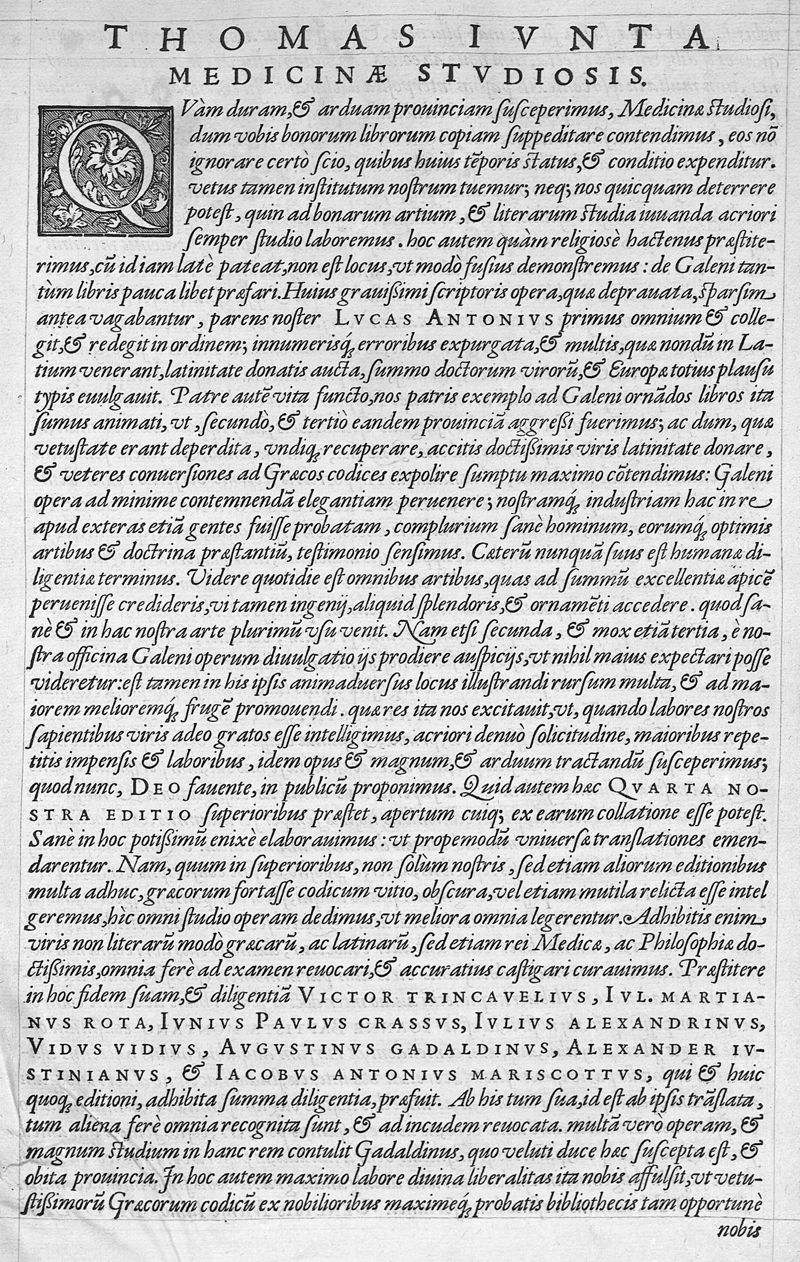 THOMAS IVNTA
MEDICINÆ STVDIOSIS.
QVàm duram, & arduam prouinciam susceperimus, Medicinæ studiosi,
dum vobis bonorum librorum copiam suppeditare contendimus, eos nõ
ignorare certò scio, quibus huius tẽporis status, & conditio expenditur.
vetus tamen institutum nostrum tuemur; neq; nos quicquam deterrere
potest, quin ad bonarum artium, & literarum studia iuuanda acriori
semper studio laboremus. hoc autem quàm religiosè hactenus præstite-
rimus, cũ id iam latè pateat, non est locus, vt modò fusius demonstremus: de Galeni tan-
tùm libris pauca libet præfari. Huius grauissimi scriptoris opera, quæ deprauata, sparsim
antea vagabantur, parens noster LVCAS ANTONIVS primus omnium & colle-
git, & redegit in ordinem; innumerisq; erroribus expurgata, & multis, quæ nondũ in La-
tium venerant, latinitate donatis aucta, summo doctorum virorũ, & Europæ totius plausu
typis euulgauit. Patre autẽ vita functo, nos patris exemplo ad Galeni ornãdos libros ita
sumus animati, vt, secundò, & tertiò eandem prouinciã aggressi fuerimus; ac dum, quæ
vetustate erant deperdita, vndiq; recuperare, accitis doctissimis viris latinitate donare,
& veteres conuersiones ad Græcos codices expolire sumptu maximo cõtendimus: Galeni
opera ad minime contemnendã elegantiam peruenere; nostramq́; industriam hac in re
apud exteras etiã gentes fuisse probatam, complurium sanè hominum, eorumq́; optimis
artibus & doctrina præstantiũ, testimonio sensimus. Cæterũ nunquã suus est humanæ di-
ligentiæ terminus. Videre quotidie est omnibus artibus, quas ad summũ excellentiæ apicẽ
peruenisse credideris, vi tamen ingenij, aliquid splendoris, & ornamẽti accedere. quod sa-
nè & in hac nostra arte plurimũ vsu venit. Nam etsi secunda, & mox etiã tertia, è no-
stra officina Galeni operum diuulgatio ijs prodiere auspicijs, vt nihil maius expectari posse
videretur: est tamen in his ipsis animaduersus locus illustrandi rursum multa, & ad ma-
iorem melioremq́; frugẽ promouendi. quæ res ita nos excitauit, vt, quando labores nostros
sapientibus viris adeo gratos esse intelligimus, acriori denuò solicitudine, maioribus repe-
titis impensis & laboribus, idem opus & magnum, & arduum tractandũ susceperimus;
quod nunc, DEO fauente, in publicũ proponimus. Quid autem hæc QVARTA NO-
STRA EDITIO superioribus præstet, apertum cuiq; ex earum collatione esse potest.
Sanè in hoc potissimũ enixè elaborauimus: vt propemodũ vniuersæ translationes emen-
darentur. Nam, quum in superioribus, non solùm nostris, sed etiam aliorum editionibus
multa adhuc, græcorum fortasse codicum vitio, obscura, vel etiam mutila relicta esse intel
geremus, hìc omni studio operam dedimus, vt meliora omnia legerentur. Adhibitis enim
viris non literarũ modò græcarũ, ac latinarũ, sed etiam rei Medicæ, ac Philosophiæ do-
ctissimis, omnia ferè ad examen reuocari, & accuratius castigari curauimus. Præstitere
in hoc fidem suam, & diligentiã VICTOR TRINCAVELIVS, IVL. MARTIA-
NVS ROTA, IVNIVS PAVLVS CRASSVS, IVLIVS ALEXANDRINVS,
VIDVS VIDIVS, AVGVSTINVS GADALDINVS, ALEXANDER IV-
STINIANVS, & IACOBVS ANTONIVS MARISCOTTVS, qui & huic
quoq; editioni, adhibita summa diligentia, præfuit. Ab his tum sua, id est ab ipsis trãslata,
tum aliena ferè omnia recognita sunt, & ad incudem reuocata. multã vero operam, &
magnum studium in hanc rem contulit Gadaldinus, quo veluti duce hæc suscepta est, &
obita prouincia. In hoc autem maximo labore diuina liberalitas ita nobis affulsit, vt vetu-
stissimorũ Græcorum codicũ ex nobilioribus maximeq́; probatis bibliothecis tam opportunè
nobis